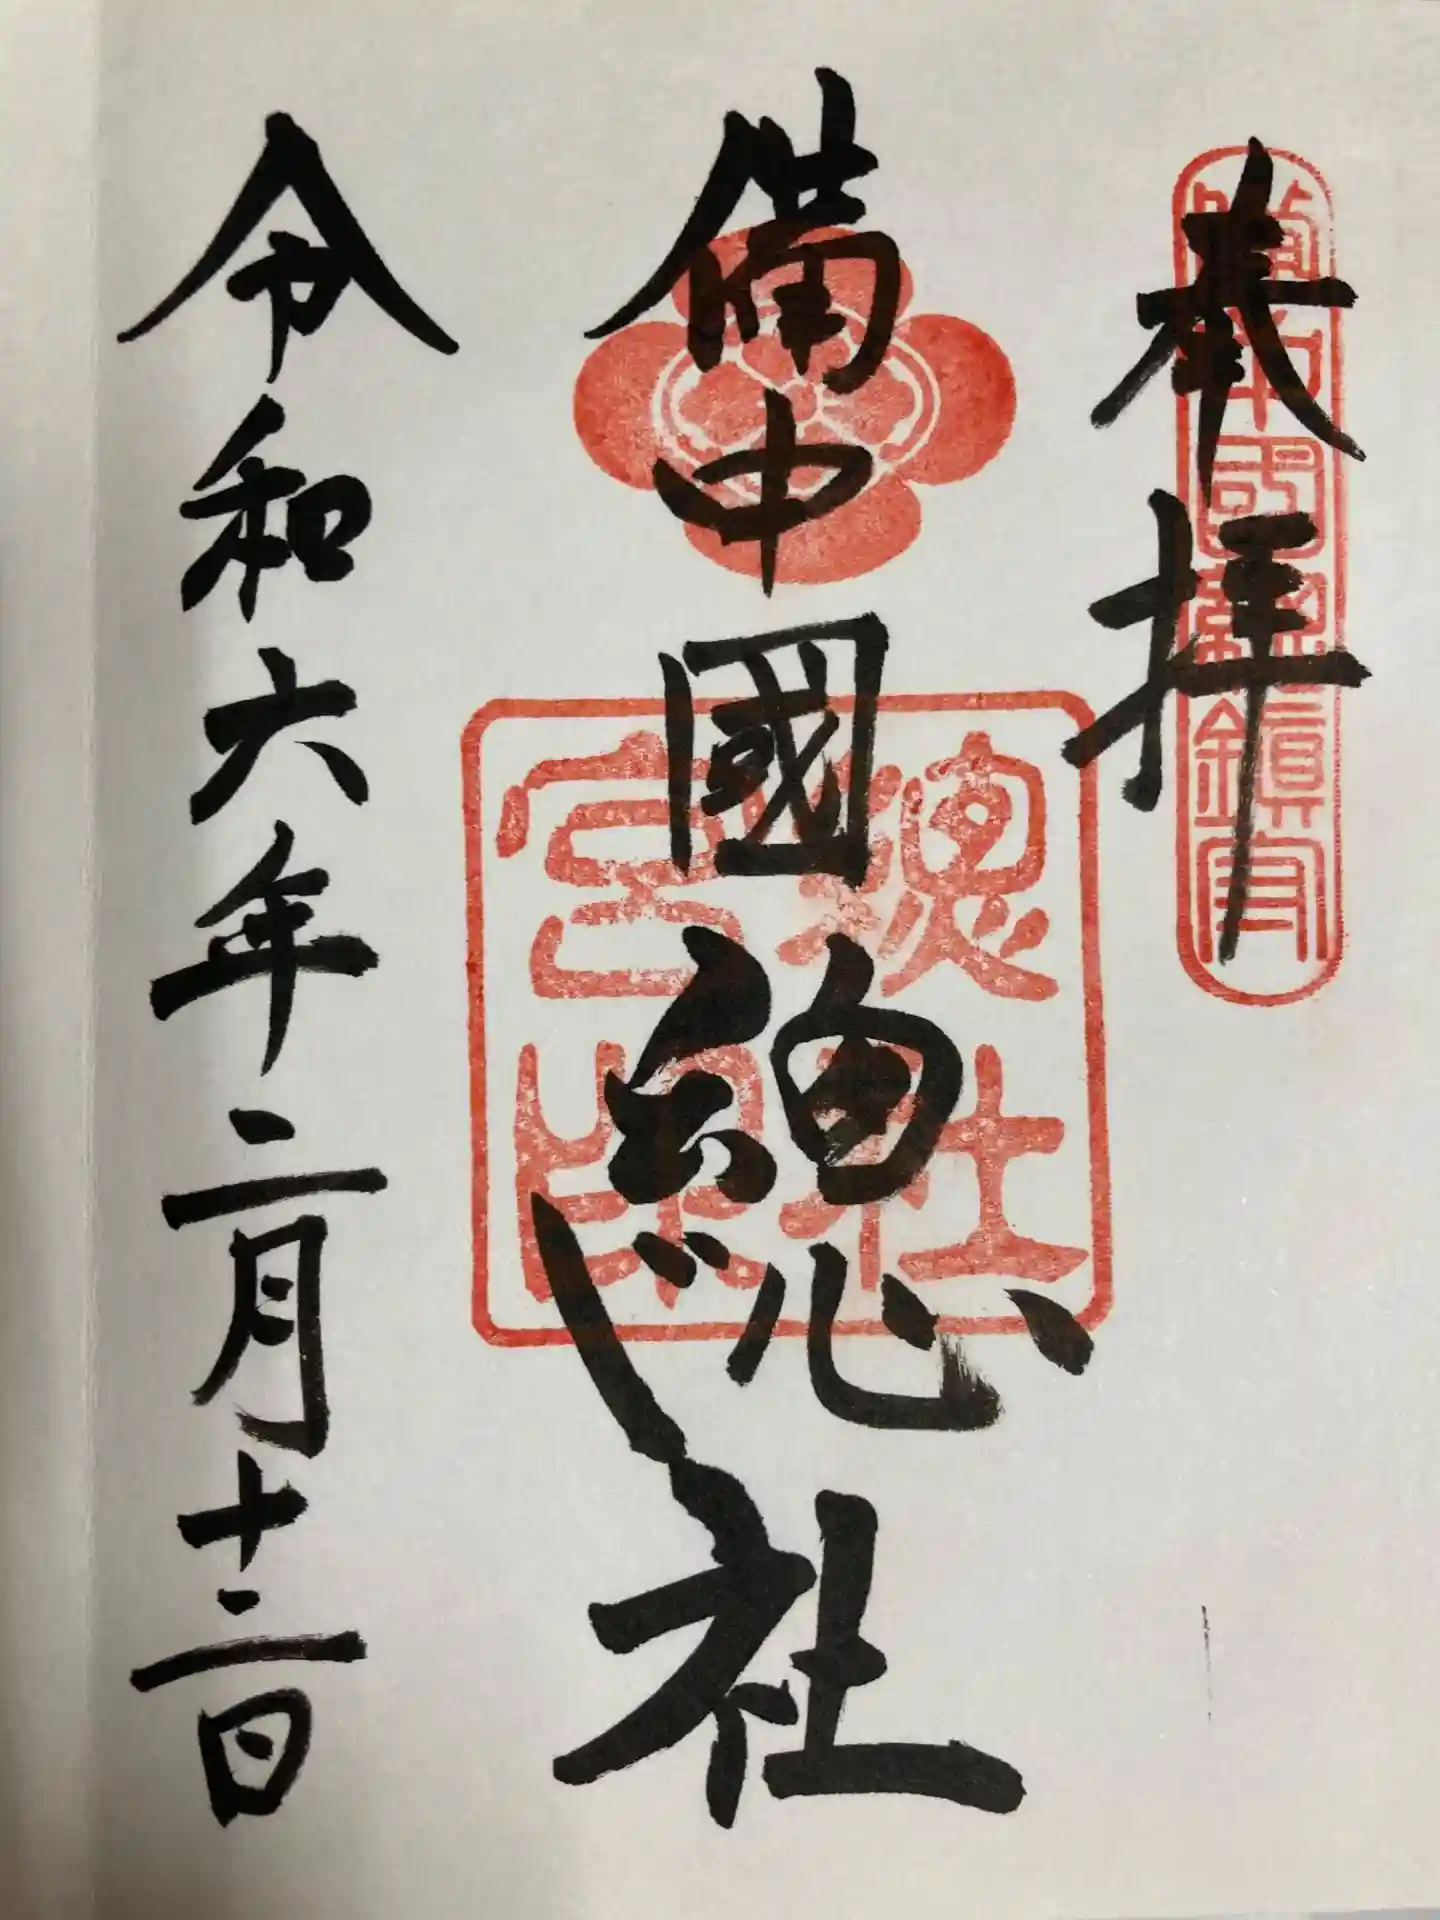 奉拝
備中國總社
令和六年二月十二日
總社
宮印